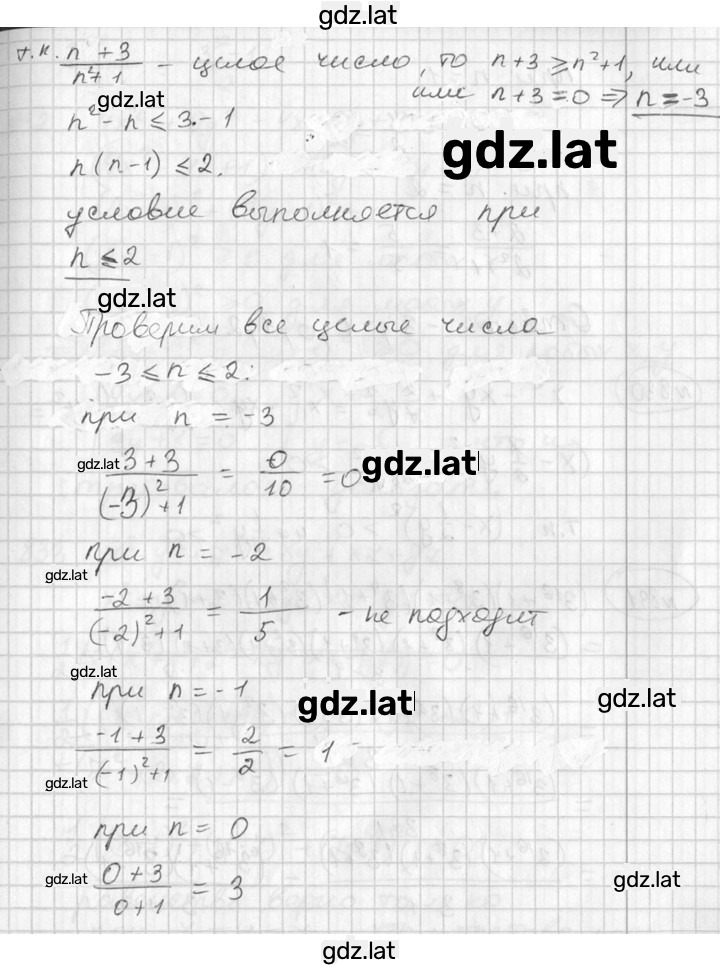 gdz.lat
т.к. (n + 3)/(n² + 1) - целое число, то n+3 ⩾ n²+1, или
или n+3=0 ⇒ n = -3
gdz.lat
n² - n ⩽ 3 - 1
gdz.lat
n(n-1) ⩽ 2.
условие выполняется при
n ⩽ 2
gdz.lat
Проверим все целые числа
-3 ⩽ n ⩽ 2:
при n = -3
gdz.lat 3+3/(-3)²+1 = 0/10 = 0 gdz.lat
при n = -2
gdz.lat
-2+3/(-2)²+1 = 1/5 - не подходит
gdz.lat
при n = -1
gdz.lat gdz.lat
-1+3/(-1)²+1 = 2/2 = 1
gdz.lat
при n = 0
gdz.lat 0+3/0+1 = 3 gdz.lat
gdz.lat